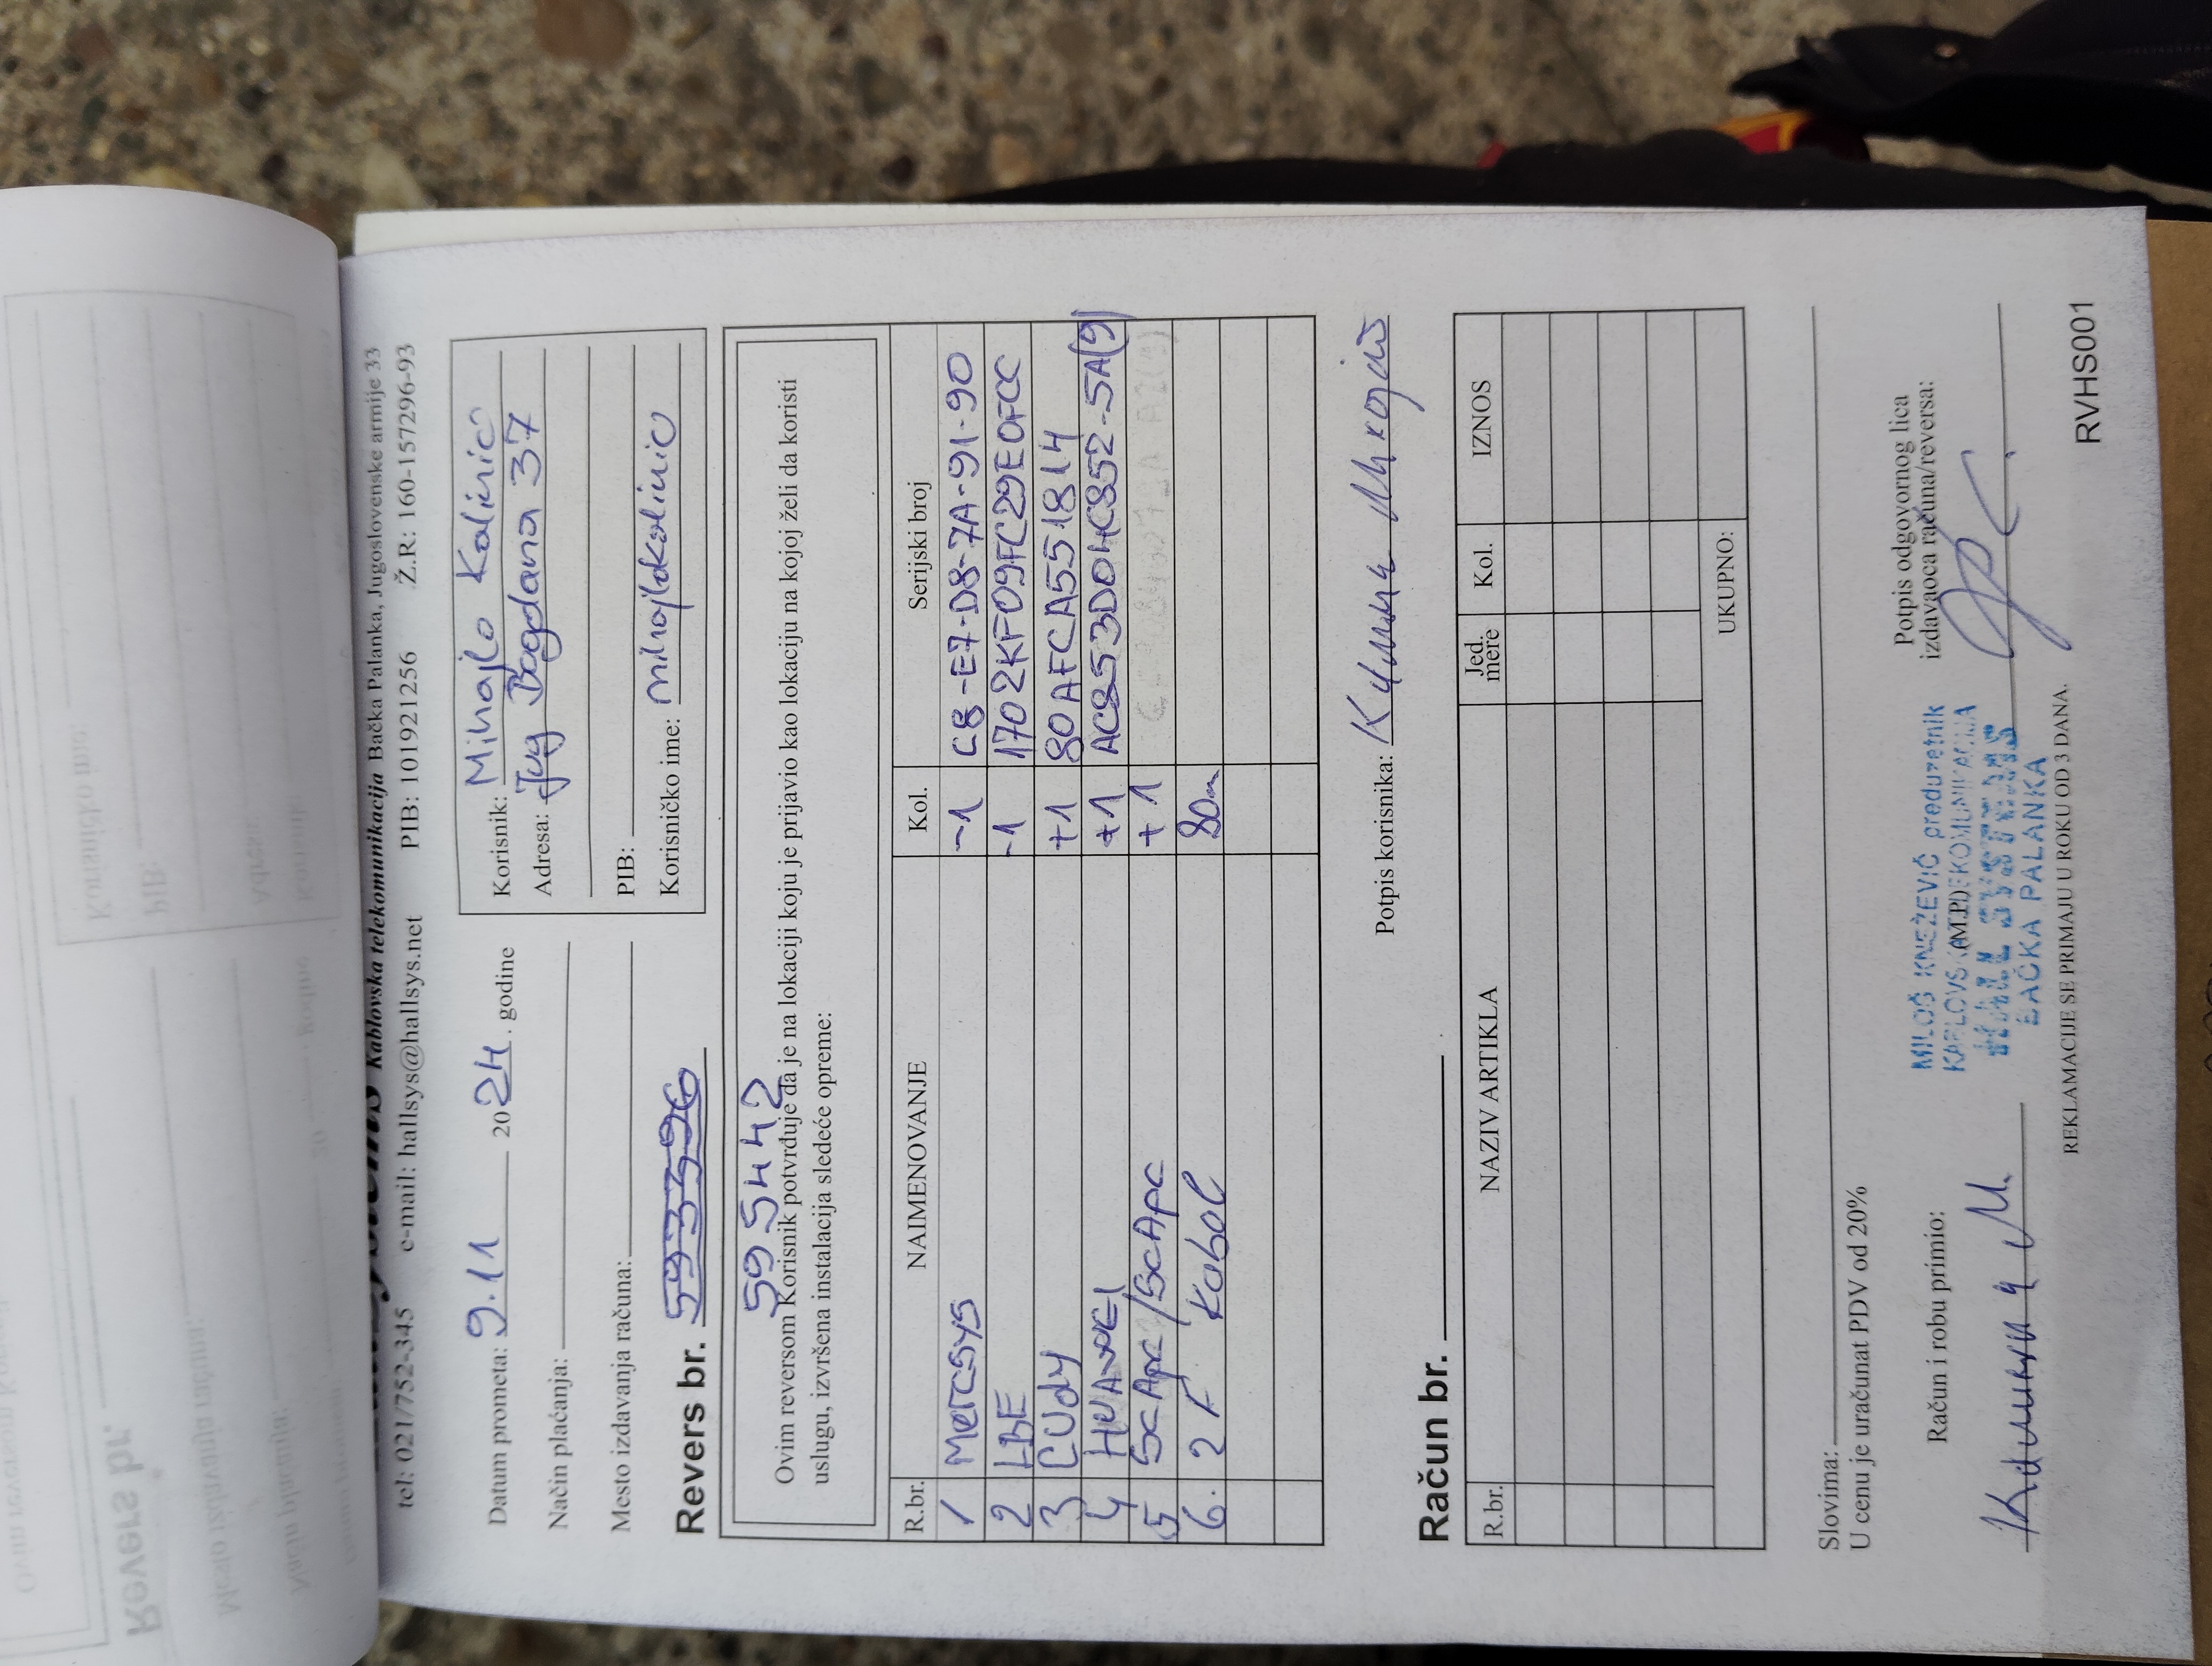 Kablovska telekomunikacija Bačka Palanka, Jugoslovenske armije 33
tel: 021/752-345 e-mail: hallsys@hallsys.net PIB: 101921256 Ž.R: 160-157296-93
Datum prometa: 9.11 2024. godine
Način plaćanja:
Mesto izdavanja računa:
Revers br. 593396
Korisnik: Mihajlo Kalinić
Adresa: Jug Bogdana 37
PIB:
Korisničko ime: mihajlokalinic
595442
Ovim reversom Korisnik potvrđuje da je na lokaciji koju je prijavio kao lokaciju na kojoj želi da koristi
uslugu, izvršena instalacija sledeće opreme:
R.br. NAIMENOVANJE Kol. Serijski broj
1 Mercsys -1 C8-E7-D8-7A-91-90
2 LBE -1 1702KF09FC29E0FCC
3 CUdy +1 80AFCA551814
4 HUAWEI +1 AC8S53D04C852-5A(9)
5 ScApc/ScApc +1
6. 2F Kabal 80m
Potpis korisnika:
Račun br.
R.br. NAZIV ARTIKLA Jed. mere Kol. IZNOS
UKUPNO:
Slovima:
U cenu je uračunat PDV od 20%
Račun i robu primio:
Potpis odgovornog lica
izdavaoca računa/reversa:
MILOŠ KNEŽEVIĆ preduzetnik
(M.P.)
HALL SYSTEMS
BAČKA PALANKA
REKLAMACIJE SE PRIMAJU U ROKU OD 3 DANA.
RVHS001